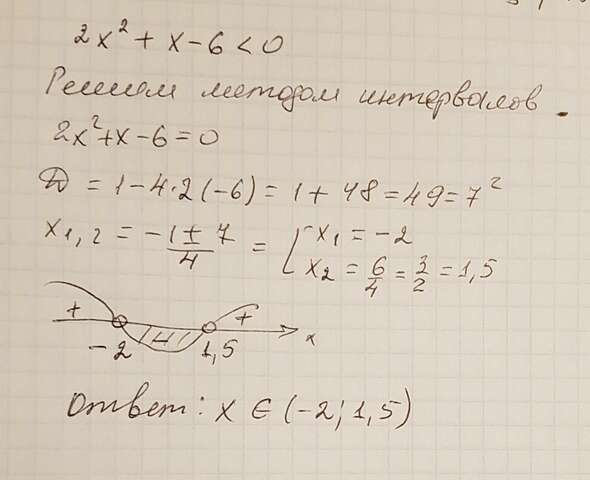 2x² + x - 6 < 0
Решим методом интервалов.
2x² + x - 6 = 0
D = 1 - 4·2(-6) = 1 + 48 = 49 = 7²
x₁,₂ = -1 ± 7 / 4 = [ x₁ = -2
x₂ = 6/4 = 3/2 = 1,5
+ - +
-2 1,5 x
Ответ: x ∈ (-2; 1,5)